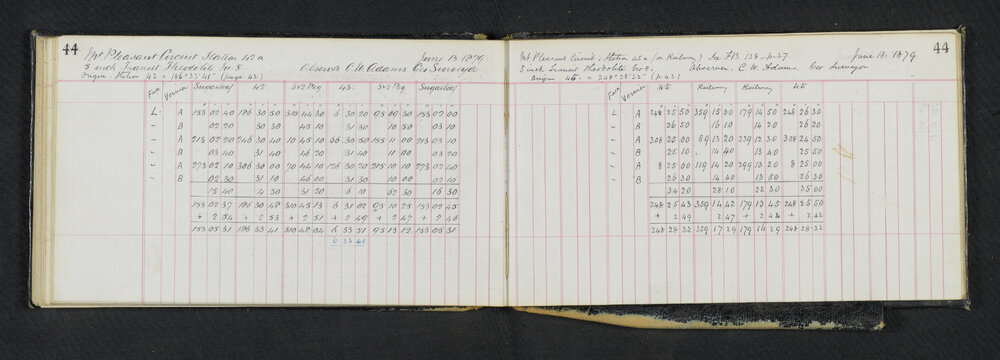 44
Mt Pleasant Circuit Station 42a June 13 1879
5 inch Transit Theodolite No 8. Observer C W Adams Geo Surveyor
Origin. Station 42 = 186° 33' 41" (page 42)
Face Vernier Sugarloaf 42 Sv2 Peg 43 Sv2 Peg Sugarloaf
L A 153 02 40 186 30 50 310 45 30 6 30 20 95 00 30 153 02 00
" B 02 20 30 30 45 10 31 30 10 50 03 10
" A 213 02 20 246 30 40 10 45 10 66 30 50 155 11 00 213 03 10
" B 03 40 31 40 46 20 31 40 11 00 03 20
" A 273 02 10 306 30 00 70 44 10 126 30 20 215 10 10 273 02 40
" B 02 30 31 10 46 00 31 30 10 00 02 10
15 40 4 50 31 20 6 10 62 30 16 30
153 02 37 186 30 48 310 45 13 6 31 02 95 10 25 153 02 45
+ 2 54 + 2 53 + 2 51 + 2 49 + 2 47 + 2 46
153 05 31 186 33 41 310 48 04 6 33 51 95 13 12 153 05 31
6 33 41
44
Mt Pleasant Circuit. Station 42a (in Railway) See F/B 138-p. 37 June 13. 1879
5 inch Transit Theodolite No 8. Observer. C W Adams. Geo Surveyor
Origin 45 = 248° 28' 32" (p 43)
Face Vernier 45 Railway Railway 45
L A 248 25 50 359 15 00 179 14 50 248 26 30
" B 26 50 16 10 14 20 26 20
" A 308 25 00 59 13 20 239 13 30 308 24 50
" B 25 10 14 40 13 40 25 50
" A 8 25 00 119 14 20 299 13 20 8 25 00
" B 26 30 14 40 13 50 26 30
34 20 28 10 22 30 35 00
248 25 43 359 14 42 179 13 45 248 25 50
+ 2 49 + 2 47 + 2 44 + 2 42
248 28 32 359 17 29 179 16 29 248 28 32